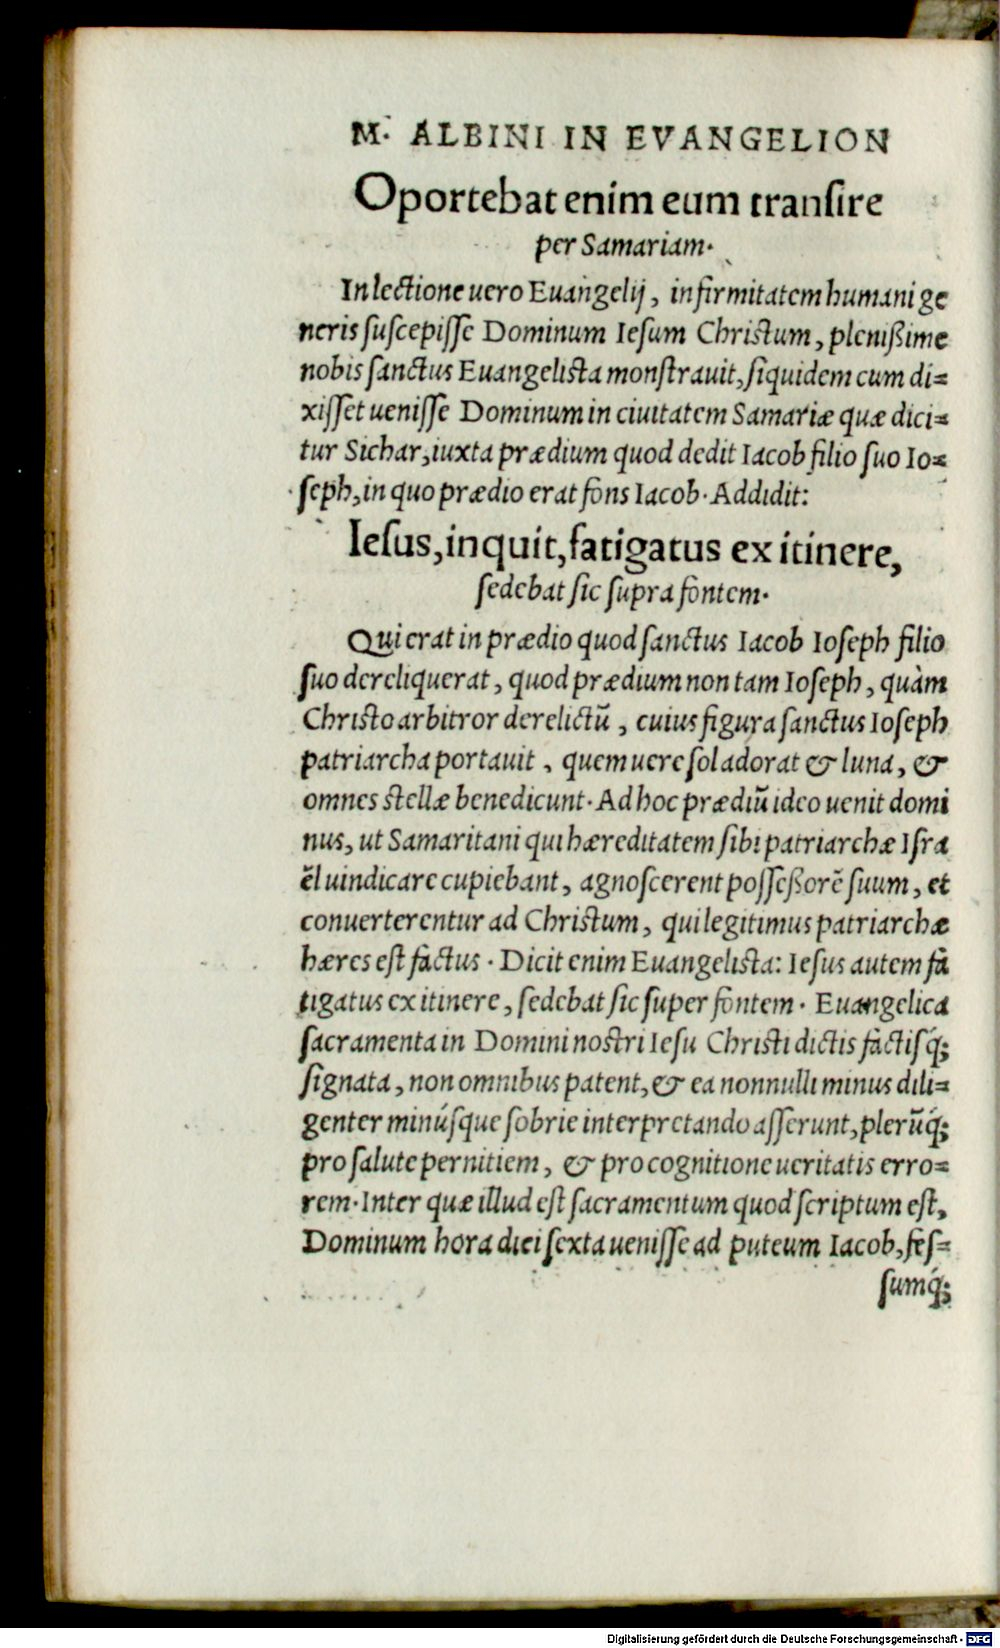 M. ALBINI IN EVANGELION
Oportebat enim eum tranſire
per Samariam.
In lectione uero Euangelij, infirmitatem humani ge
neris ſuſcepiſſe Dominum Ieſum Chriſtum, pleniſsime
nobis ſanctus Euangeliſta monſtrauit, ſiquidem cum di=
xiſſet ueniſſe Dominum in ciuitatem Samariæ quæ dici=
tur Sichar, iuxta prædium quod dedit Iacob filio ſuo Io=
ſeph, in quo prædio erat fons Iacob. Addidit:
Ieſus, inquit, fatigatus ex itinere,
ſedebat ſic ſupra fontem.
Qui erat in prædio quod ſanctus Iacob Ioſeph filio
ſuo dereliquerat, quod prædium non tam Ioſeph, quàm
Chriſto arbitror derelictū, cuius figura ſanctus Ioſeph
patriarcha portauit, quem uere ſol adorat & luna, &
omnes ſtellæ benedicunt. Ad hoc prædiū ideo uenit domi
nus, ut Samaritani qui hæreditatem ſibi patriarchæ Iſra
ēl uindicare cupiebant, agnoſcerent poſſeſsorē ſuum, et
conuerterentur ad Chriſtum, qui legitimus patriarchæ
hæres eſt factus. Dicit enim Euangeliſta: Ieſus autem fa
tigatus ex itinere, ſedebat ſic ſuper fontem. Euangelica
ſacramenta in Domini noſtri Ieſu Chriſti dictis factiſq́;
ſignata, non omnibus patent, & ea nonnulli minus dili=
genter minúſque ſobrie interpretando aſſerunt, plerūq́;
pro ſalute pernitiem, & pro cognitione ueritatis erro=
rem. Inter quæ illud eſt ſacramentum quod ſcriptum eſt,
Dominum hora diei ſexta ueniſſe ad puteum Iacob, feſ=
ſumq́;
Digitalisierung gefördert durch die Deutsche Forschungsgemeinschaft - DFG